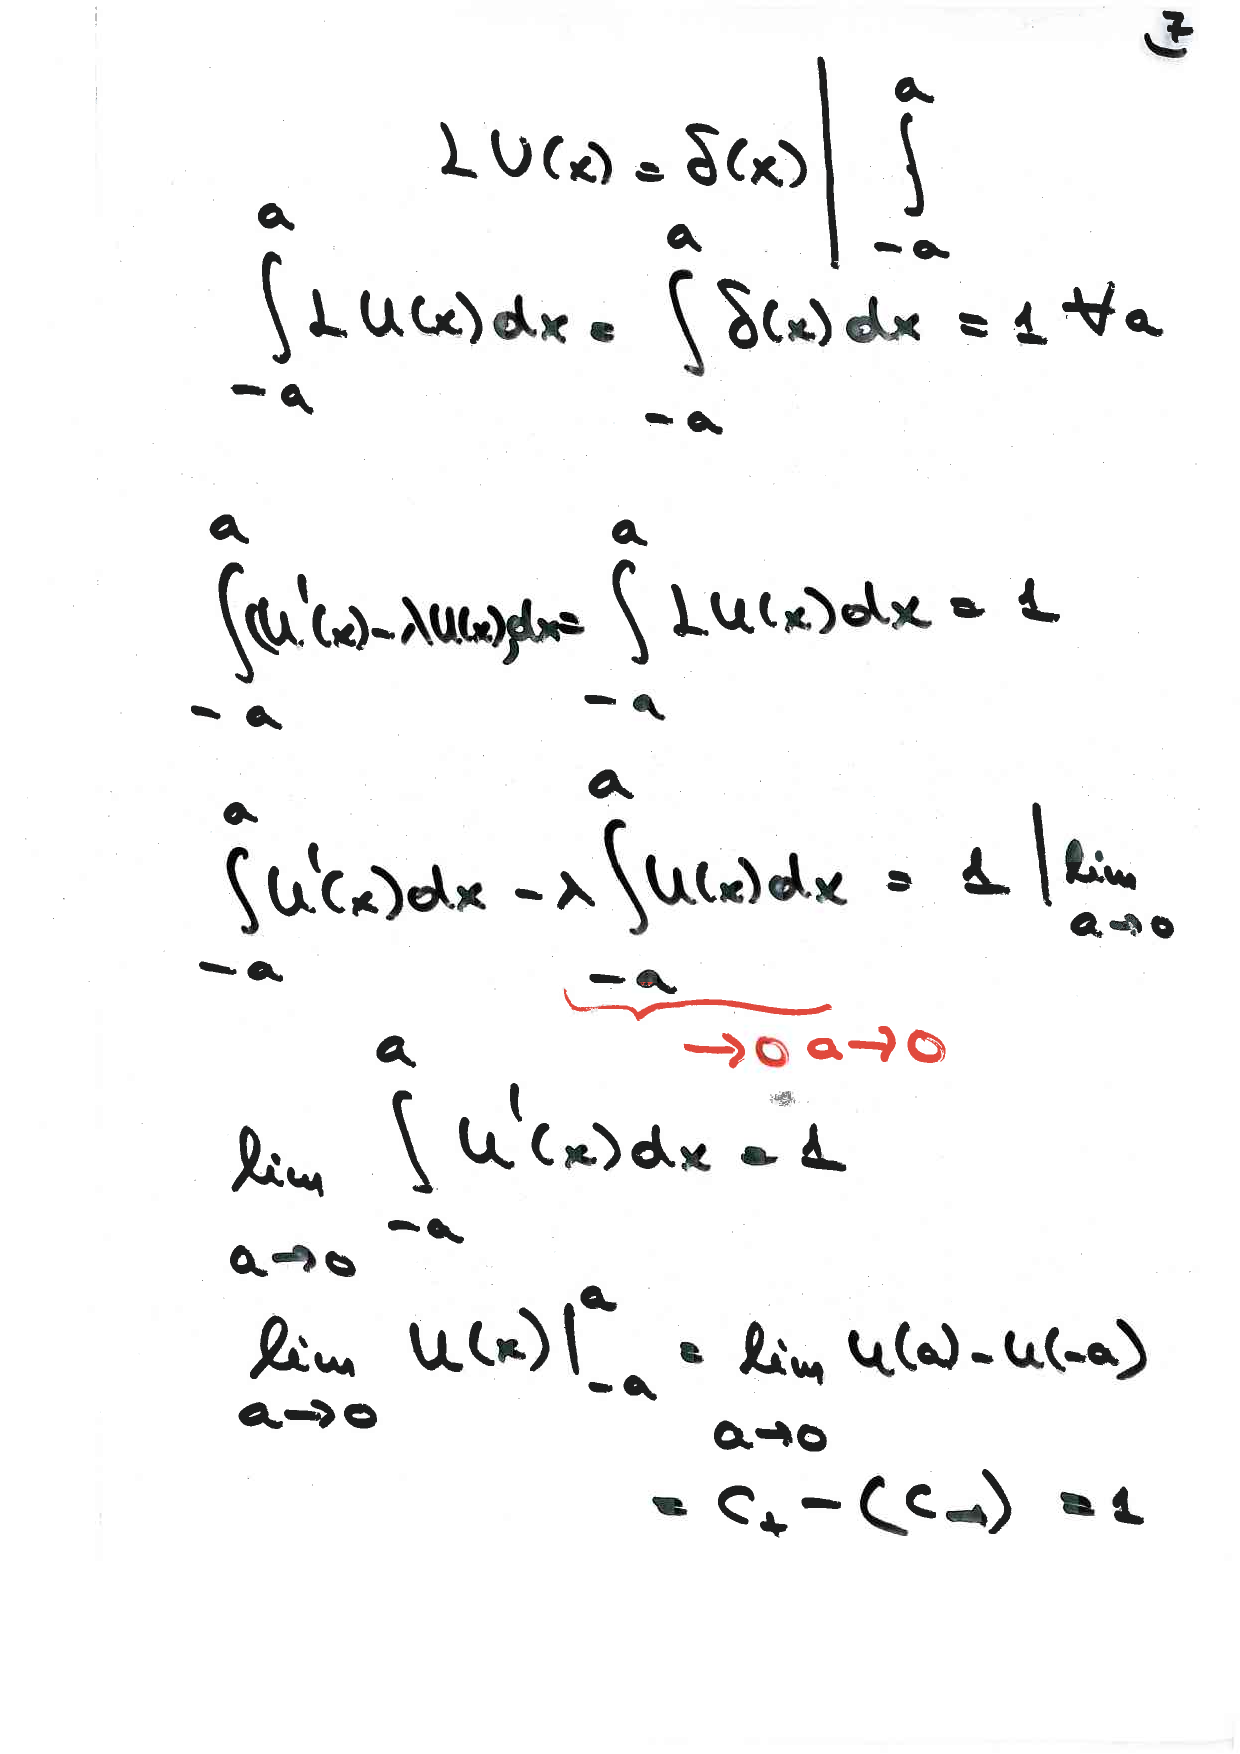 7
L U(x) = δ(x) | ∫_{-a}^{a}
∫_{-a}^{a} L U(x) dx = ∫_{-a}^{a} δ(x) dx = 1 ∀ a
∫_{-a}^{a} (U'(x) - λU(x)) dx = ∫_{-a}^{a} L U(x) dx = 1
∫_{-a}^{a} U'(x) dx - λ ∫_{-a}^{a} U(x) dx = 1 | lim_{a→0}
→0 a→0
lim_{a→0} ∫_{-a}^{a} U'(x) dx = 1
lim_{a→0} U(x) |_{-a}^{a} = lim_{a→0} U(a) - U(-a)
= C_+ - (C_-) = 1